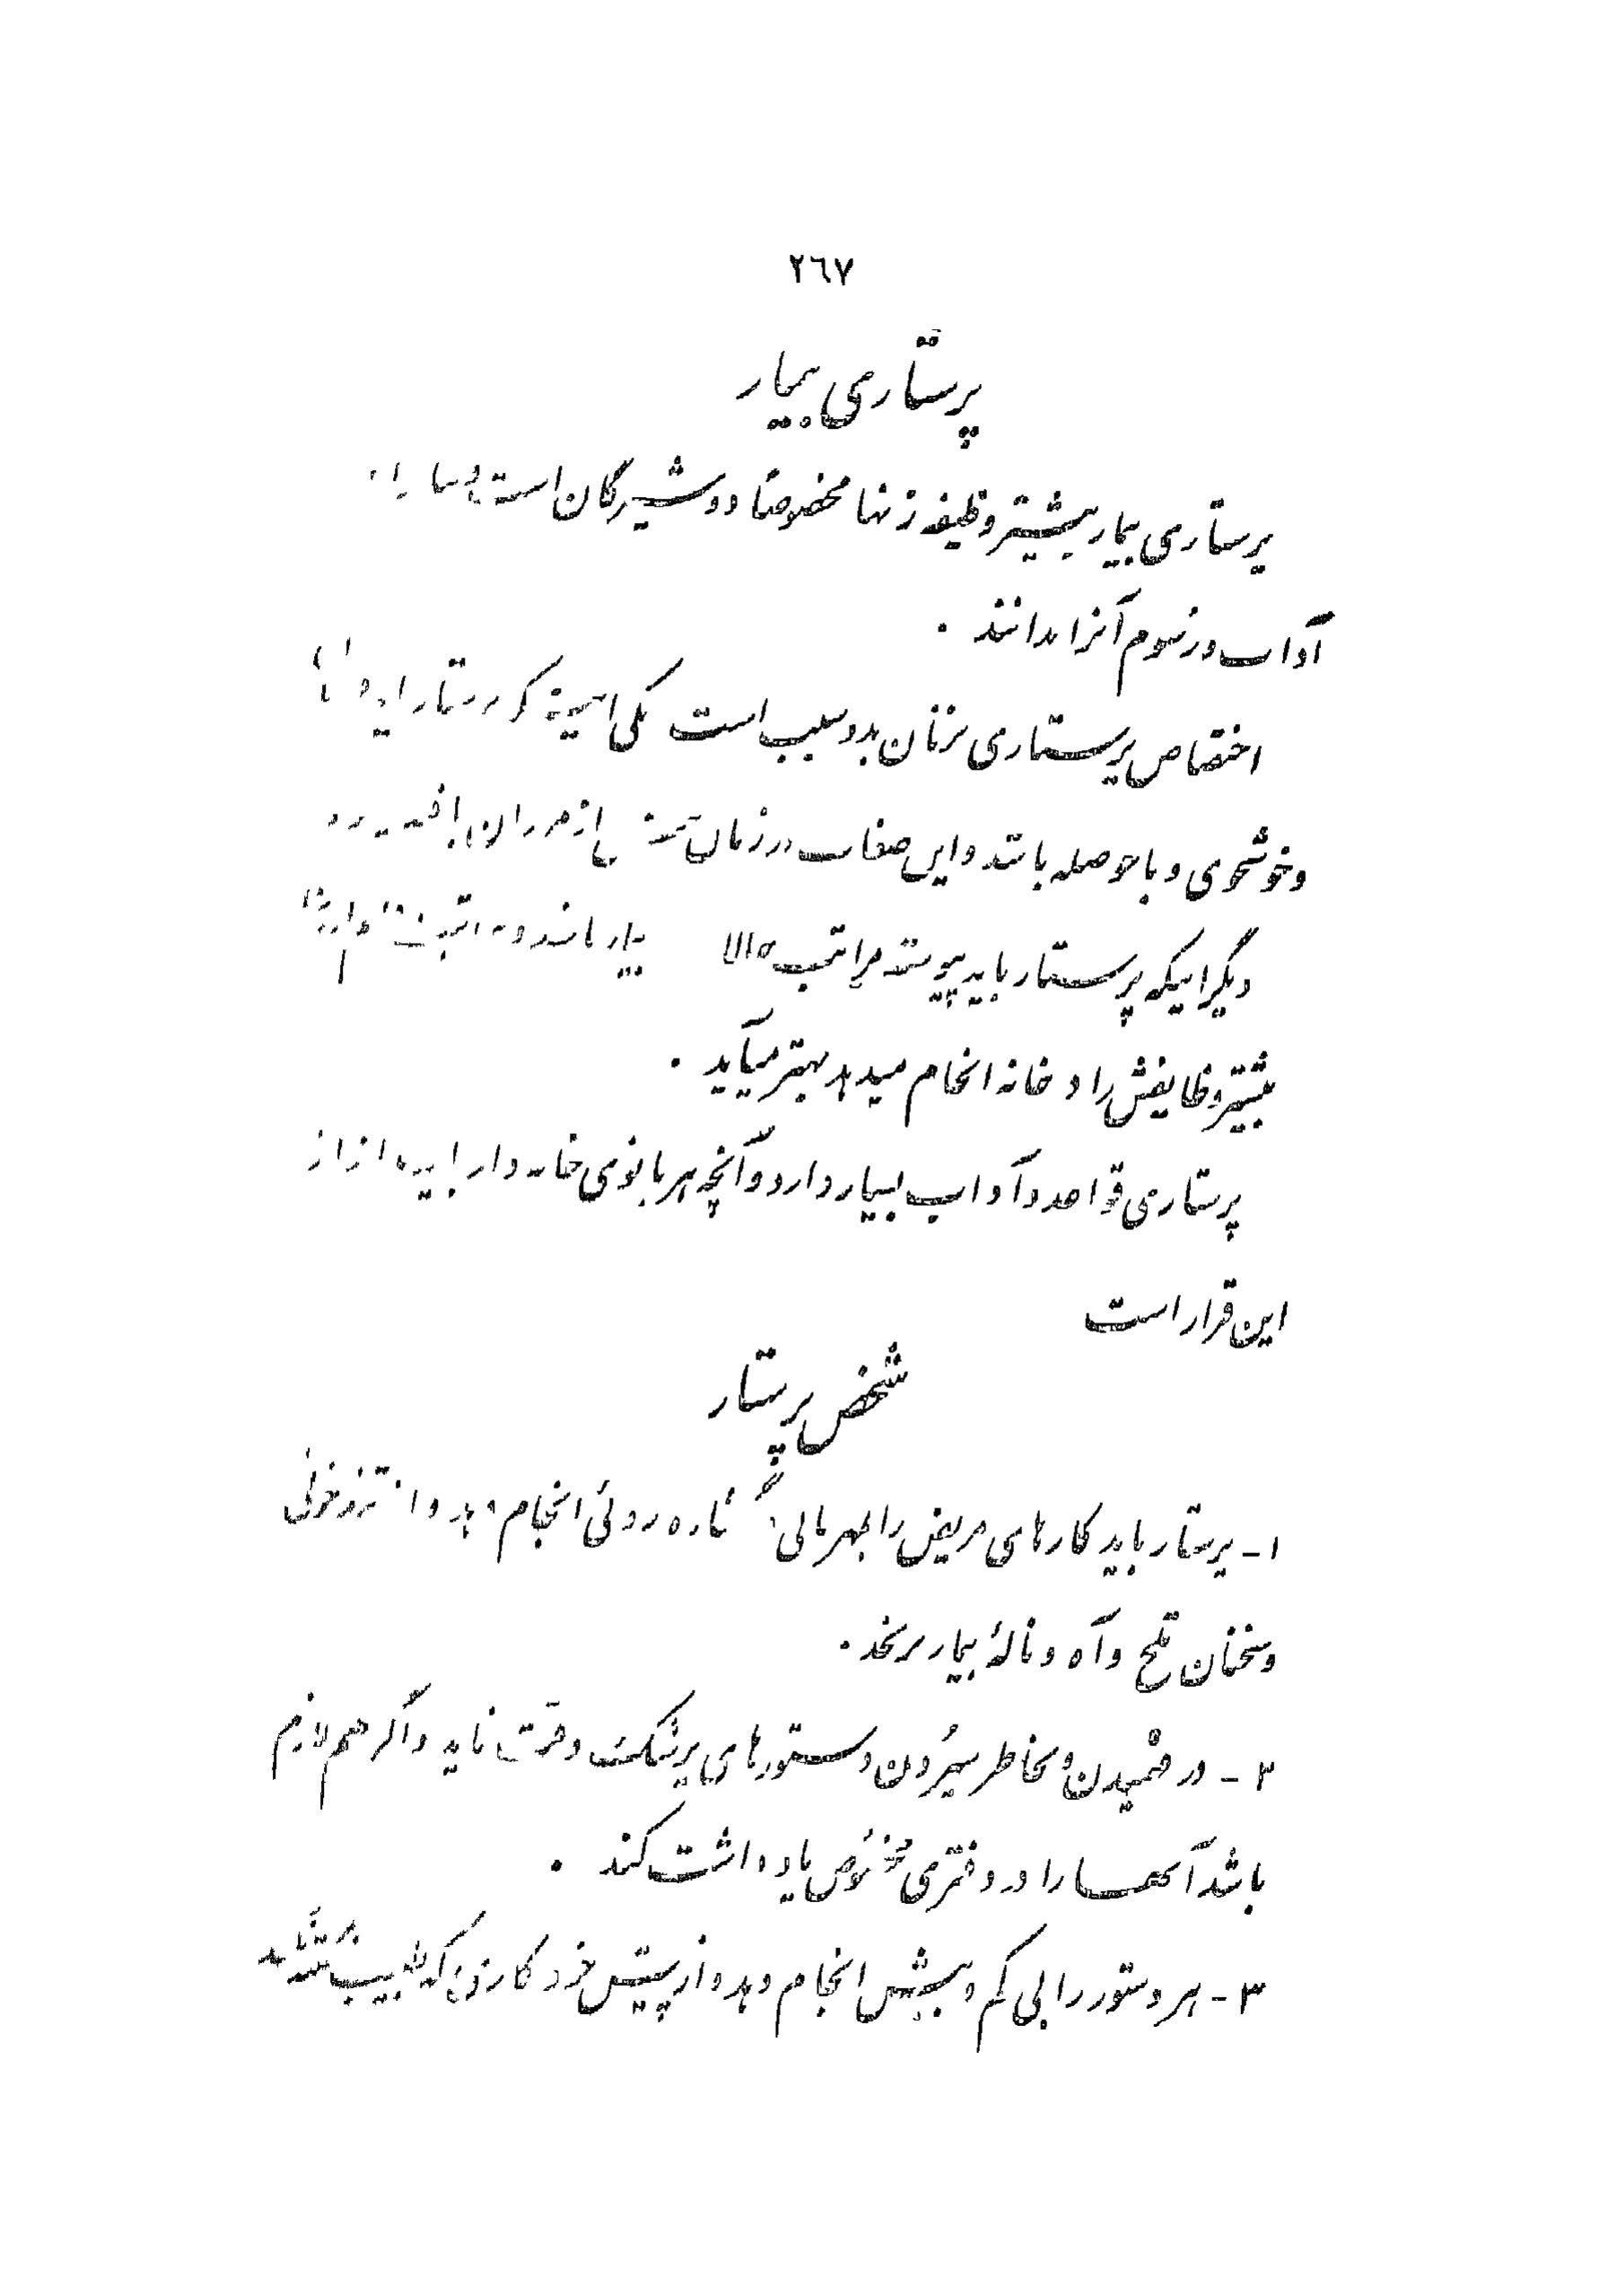 ٢٦٧
پرستاری بیمار
پرستاری بیمار بیشتر وظیفه زنها مخصوصاً دوشیزگان است
آداب و رسوم آنرا بدانند .
اختصاص پرستاری بزنان بدو سبب است یکی اینست که پرستار باید
و خوشخوی و با حوصله باشد و این صفات در زنان از مردان
دیگر اینکه پرستار باید پیوسته مراقب باشد و
بیشتر وظایفش را در خانه انجام میدهد بهتر میآید .
پرستاری قواعد و آداب بسیار دارد و آنچه هر بانوی خانه دار باید از
این قرار است
شخص پرستار
١ - پرستار باید کارهای مریض را بمهربانی گشاده روئی انجام دهد و از تندخوئی
و سخنان تلخ و آه و نالهٔ بیمار نرنجد .
٢ - در فهمیدن و بخاطر سپردن دستورهای پزشک دقت نماید و اگر هم لازم
باشد آنها را در دفتری مخصوص یادداشت کند .
٣ - هر دستور را بی کم و بیش انجام دهد و از پیش خود کاری که طبیب